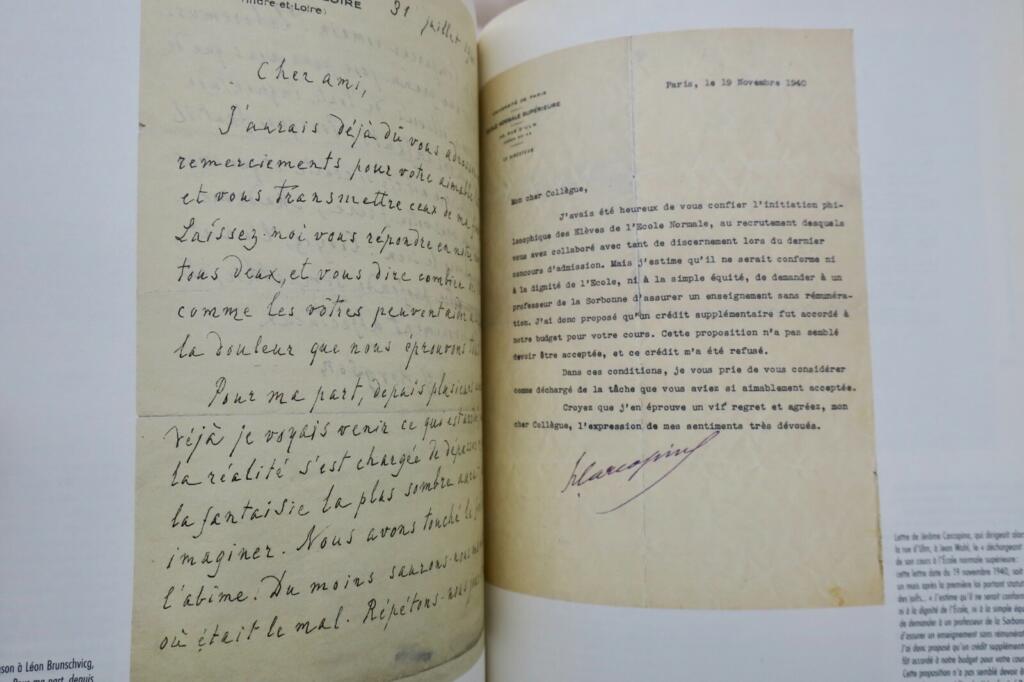 LOIRE
(Indre-et-Loire)
31 juillet
Cher ami,
J'aurais déjà dû vous
remerciements pour votre
et vous transmettre ceux de ma
Laissez-moi vous répondre en
tous deux, et vous dire
comme les vôtres peuvent
la douleur que nous éprouvons
Pour ma part, depuis plusieurs
déjà je voyais venir ce qui est
la réalité s'est chargée de
la fantaisie la plus sombre
imaginer. Nous avons touché le
l'abîme. Du moins saurons-nous
où était le mal. Répétons-nous
son à Léon Brunschvicg,
Pour ma part, depuis
UNIVERSITÉ DE PARIS
ÉCOLE NORMALE SUPÉRIEURE
45, RUE D'ULM
LE DIRECTEUR
Paris, le 19 Novembre 1940
Mon cher Collègue,
J'avais été heureux de vous confier l'initiation phi-
losophique des Elèves de l'Ecole Normale, au recrutement desquels
vous avez collaboré avec tant de discernement lors du dernier
concours d'admission. Mais j'estime qu'il ne serait conforme ni
à la dignité de l'Ecole, ni à la simple équité, de demander à un
professeur de la Sorbonne d'assurer un enseignement sans rémunéra-
tion. J'ai donc proposé qu'un crédit supplémentaire fut accordé à
notre budget pour votre cours. Cette proposition n'a pas semblé
devoir être acceptée, et ce crédit m'a été refusé.
Dans ces conditions, je vous prie de vous considérer
comme déchargé de la tâche que vous aviez si aimablement acceptée.
Croyez que j'en éprouve un vif regret et agréez, mon
cher Collègue, l'expression de mes sentiments très dévoués.
Lettre de Jérôme Carcopino, qui dirigeait alors
la rue d'Ulm, à Jean Wahl, le « déchargeant »
de son cours à l'École normale supérieure :
cette lettre date du 19 novembre 1940, soit
un mois après la première loi portant statut
des juifs... « J'estime qu'il ne serait conforme
ni à la dignité de l'École, ni à la simple
de demander à un professeur de la Sorbonne
d'assurer un enseignement sans
J'ai donc proposé qu'un crédit
fût accordé à notre budget pour votre
Cette proposition n'a pas semblé devoir